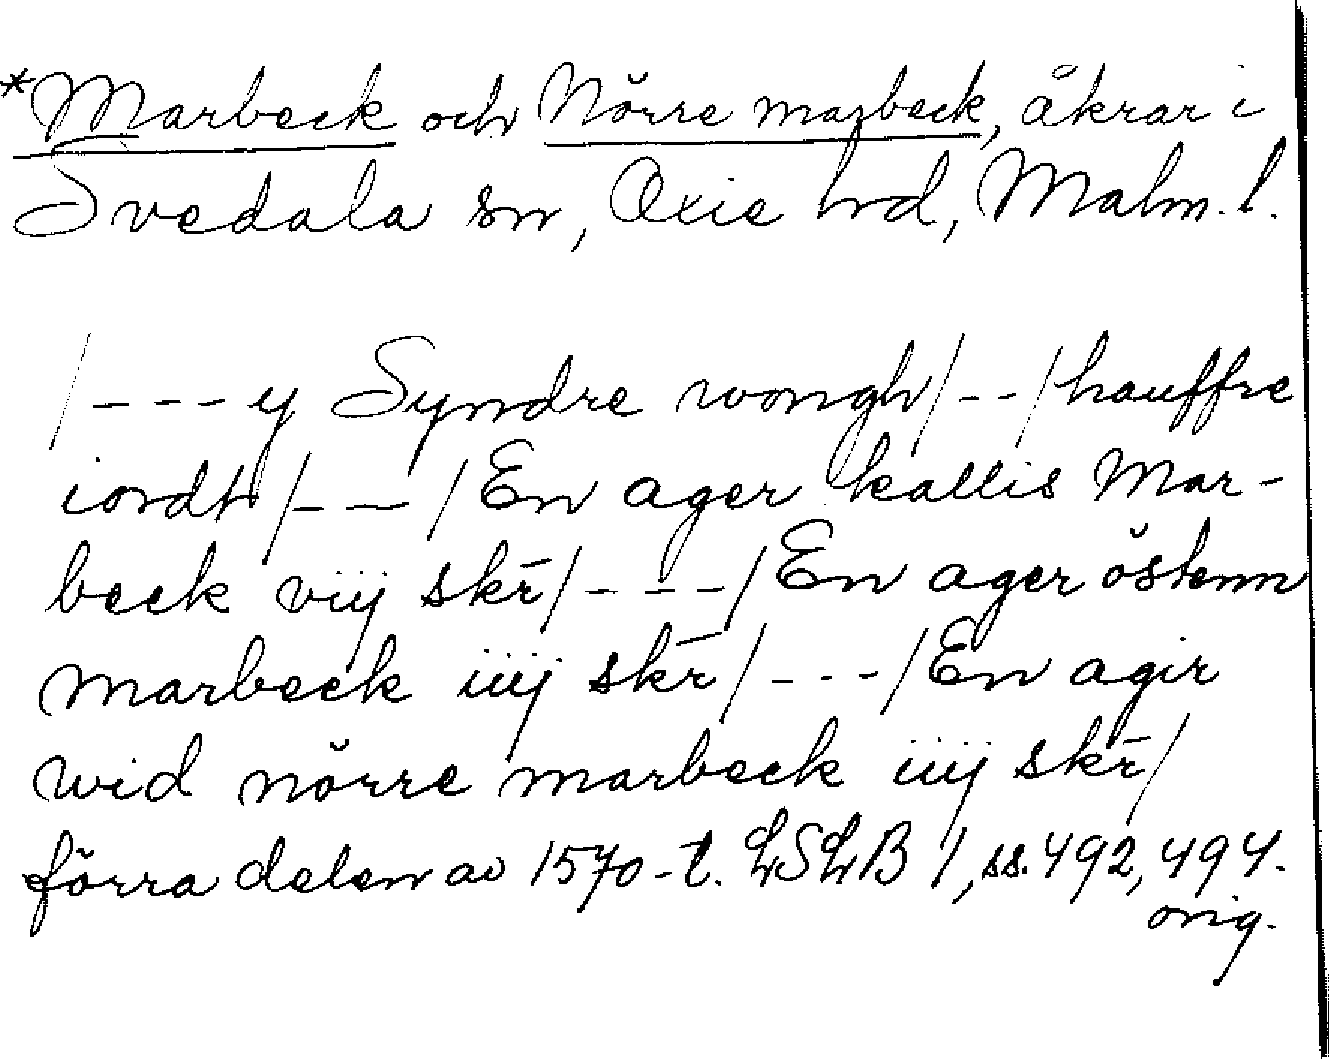 *Marbeck och Nörre marbeck, åkrar i
Svedala sn, Oxie hrd, Malm. l.
/---y Syndre wongh/--/hauffre
iordh/--/En ager kallis Mar-
beck viij skr̄/---/En ager östenn
marbeck iiij skr̄/---/En agir
wid nörre marbeck iiij skr̄/
förra delen av 1570-t. LSLB 1, ss. 492, 494.
orig.